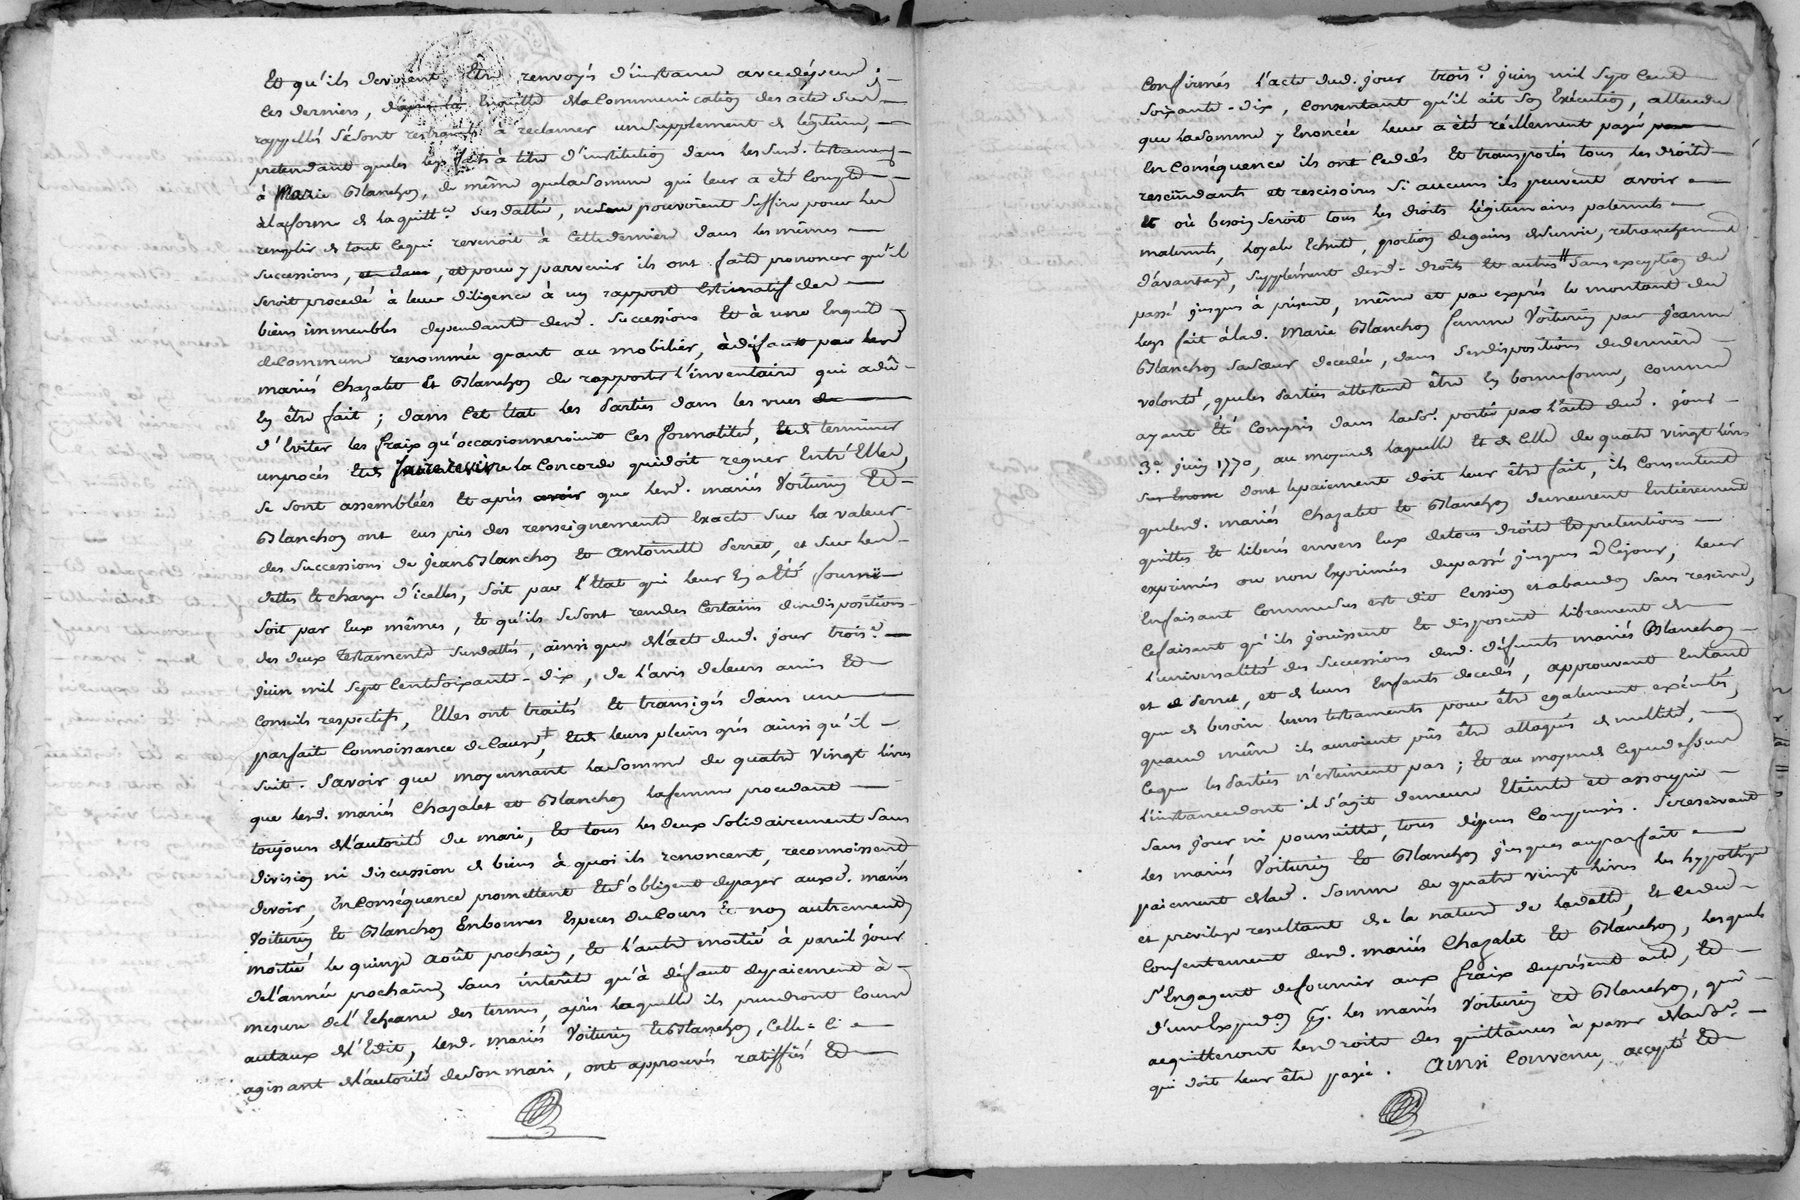 Et qu'ils devroient Être renvoyés d'instance avec dépens ;
Ces derniers, ensuitte de la Communication des actes sus
rappellés se sont restraints à réclamer un supplement de légitime,
pretendant que les legs faits à titre d'institution dans les susd. testamens
à Marie Blanchon, de même que la somme qui leur a été Comptée
à la forme de la quitt.ce susdattée, ne pouvoient suffire pour les
remplir de tout ce qui revenoit à cette derniere dans les mêmes
successions, et pour y parvenir ils ont fait prononcer qu'il
seroit procedé à leur diligence à un rapport Estimatif des
biens immeubles dependants desd. successions Et à une Enquête
de Commune renommée quant au mobilier, à défaut par lesd
mariés Chazalet Et Blanchon de rapporter l'inventaire qui a dû
En être fait ; dans Cet Etat les Parties dans les vues
d'Eviter les fraix qu'occasionneroint Ces formalités, de terminer
un procés Et de faire revivre la Concorde qui doit regner Entre Elles,
se sont assemblées Et après que lesd. mariés Voiturin Et
Blanchon ont eus pris des renseignements Exacts sur la valeur
des successions de Jean Blanchon Et Antoinette Serret, et sur les
dettes Et charges d'icelles, soit par l'Etat qui leur En a Eté fourni
soit par Eux mêmes, Et qu'ils se sont rendus Certains des dispositions
des deux Testaments susdattés, ainsi que de l'acte dud. jour trois.e
juin mil sept Cent soixante-dix, de l'avis de leurs amis Et
Conseils respectifs, Elles ont traités Et transigés dans une
parfaite Connoissance de Cause, Et de leurs pleins grés ainsi qu'il
suit. Savoir que moyennant la somme de quatre vingt livres
que lesd. mariés Chazalet et Blanchon la femme procedant
toujours de l'autorité du mari, Et tous les deux solidairement sans
division ni discussion de biens à quoi ils renoncent, reconnoissent
devoir, En Conséquence promettent Et s'obligent de payer auxd. mariés
Voiturin Et Blanchon En bonnes Especes du Cours Et non autrement
moitié le quinze Août prochain, Et l'autre moitié à pareil jour
de l'année prochaine sans interêts qu'à défaut de paiement à
mesure de l'Echeance des termes, après laquelle ils prendront Cours
au taux de l'Edit, lesd. mariés Voiturin Et Blanchon, Celle-Ci
agissant de l'autorité de son mari, ont approuvés ratiffiés Et
Confirmés l'acte dud. jour trois.e juin mil sept Cent
soixante-dix, Consentant qu'il ait son Exécution, attendu
que la somme y Enoncée leur a été réellement payée
En Conséquence ils ont Cedés Et transportés tous les droits
rescindants et rescisoires si aucuns ils peuvent avoir
et où besoin seroit tous les droits légitimaires paternels
maternels, loyale Echute, portion de gains de survie, retranchement
d'avantage, supplément desd. droits Et autres sans exception du
passé jusques à présent, même et par exprès le montant du
legs fait à lad. Marie Blanchon femme Voiturin par Jeanne
Blanchon sa sœur decedée, dans ses dispositions de derniere
volonté, que les Parties attestent être En bonne forme, comme
ayant Eté Compris dans la so.e portée par l'acte dud. jour
3.e juin 1770, au moyend laquelle et de Celle de quatre vingt livres
dont le paiement doit leur être fait, ils Consentent
que lesd. mariés Chazalet Et Blanchon demeurent Entièrement
quittes Et liberés envers Eux de tous droits Et pretentions
exprimés ou non Exprimés du passé jusques à Ce jour, leur
En faisant Comme sus est dit Cession et abandon sans reserve,
Ce faisant qu'ils jouissent Et disposent librement de
l'universalité des successions desd. défunts mariés Blanchon
et de Serret, et de leurs Enfants decedés, approuvent En tant
que de besoin leurs testaments pour être egalement exécutés,
quand même ils auroient pûs être attaqués de nullité,
Ce que les Parties n'estiment pas ; Et au moyend Ce que dessus
l'instance dont il s'agit demeure Eteinte et assoupie
sans jour ni poursuitte, tous dépens Compensés. Se reservant
les mariés Voiturin Et Blanchon jusques au parfait
paiement de lad. somme de quatre vingt livres les hypothèque
et privilege resultant de la nature de la dette, Et Ce du
Consentement desd. mariés Chazalet Et Blanchon, lesquels
s'Engagent de fournir aux fraix du présent acte, Et
d'une Exped.on les mariés Voiturin Et Blanchon, qui
acquitteront les droits des quittances à passer de lad. so.e
qui doit leur être payée. Ainsi Convenu, accepté Et